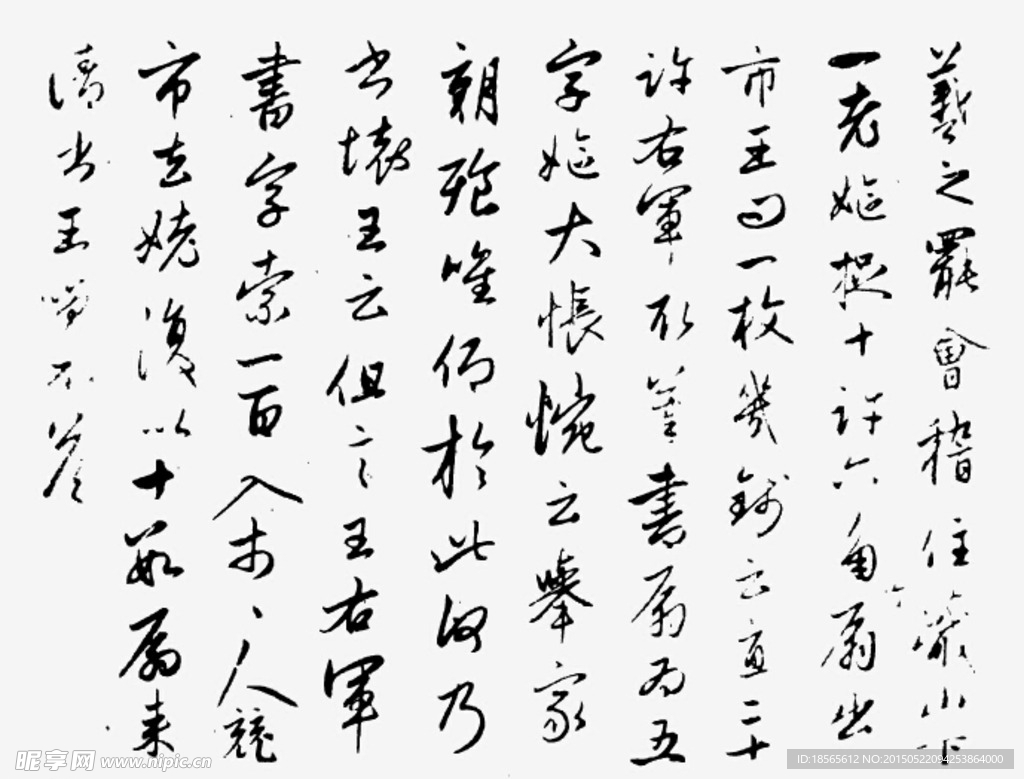 羲之罷會稽住蕺山下
一老嫗捉十許六角扇出
市王問一枚幾錢云直二十
許右軍取筆書扇為五
字嫗大悵惋云舉家
朝飡唯仰於此何乃
書壞王云但言王右軍
書字索一百入市〻人競
市去姥復以十數扇來
請書王笑不答
昵享网 www.nipic.cn
ID:18565612 NO:20150522094253864000